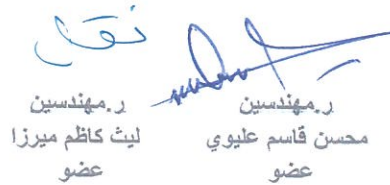 ر.مهندسين
محسن قاسم عليوي
عضو
ر.مهندسين
ليث كاظم ميرزا
عضو